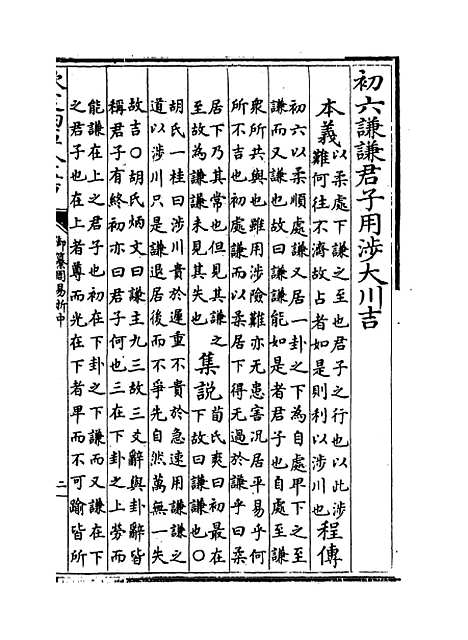 初六謙謙君子用涉大川吉
本義以柔處下謙之至也君子之行也以此涉
難何往不濟故占者如是則利以涉川也程傳
初六以柔順處謙又居一卦之下為自處卑下之至
謙而又謙也故曰謙謙能如是者君子也自處至謙
衆所共與也雖用涉險難亦无患害况居平易乎何
所不吉也初處謙而以柔居下得无過於謙乎曰柔
居下乃其常也但見其謙之
至故為謙謙未見其失也集說荀氏爽曰初最在
下故曰謙謙也○
胡氏一桂曰涉川貴於遲重不貴於急速用謙謙之
道以涉川只是謙退居後而不爭先自然萬無一失
故吉○胡氏炳文曰謙主九三故三爻辭與卦辭皆
稱君子有終初亦曰君子何也三在下卦之上勞而
能謙在上之君子也初在下卦之下謙而又謙在下
之君子也在上者尊而光在下者卑而不可踰皆所
御纂周易折中
二